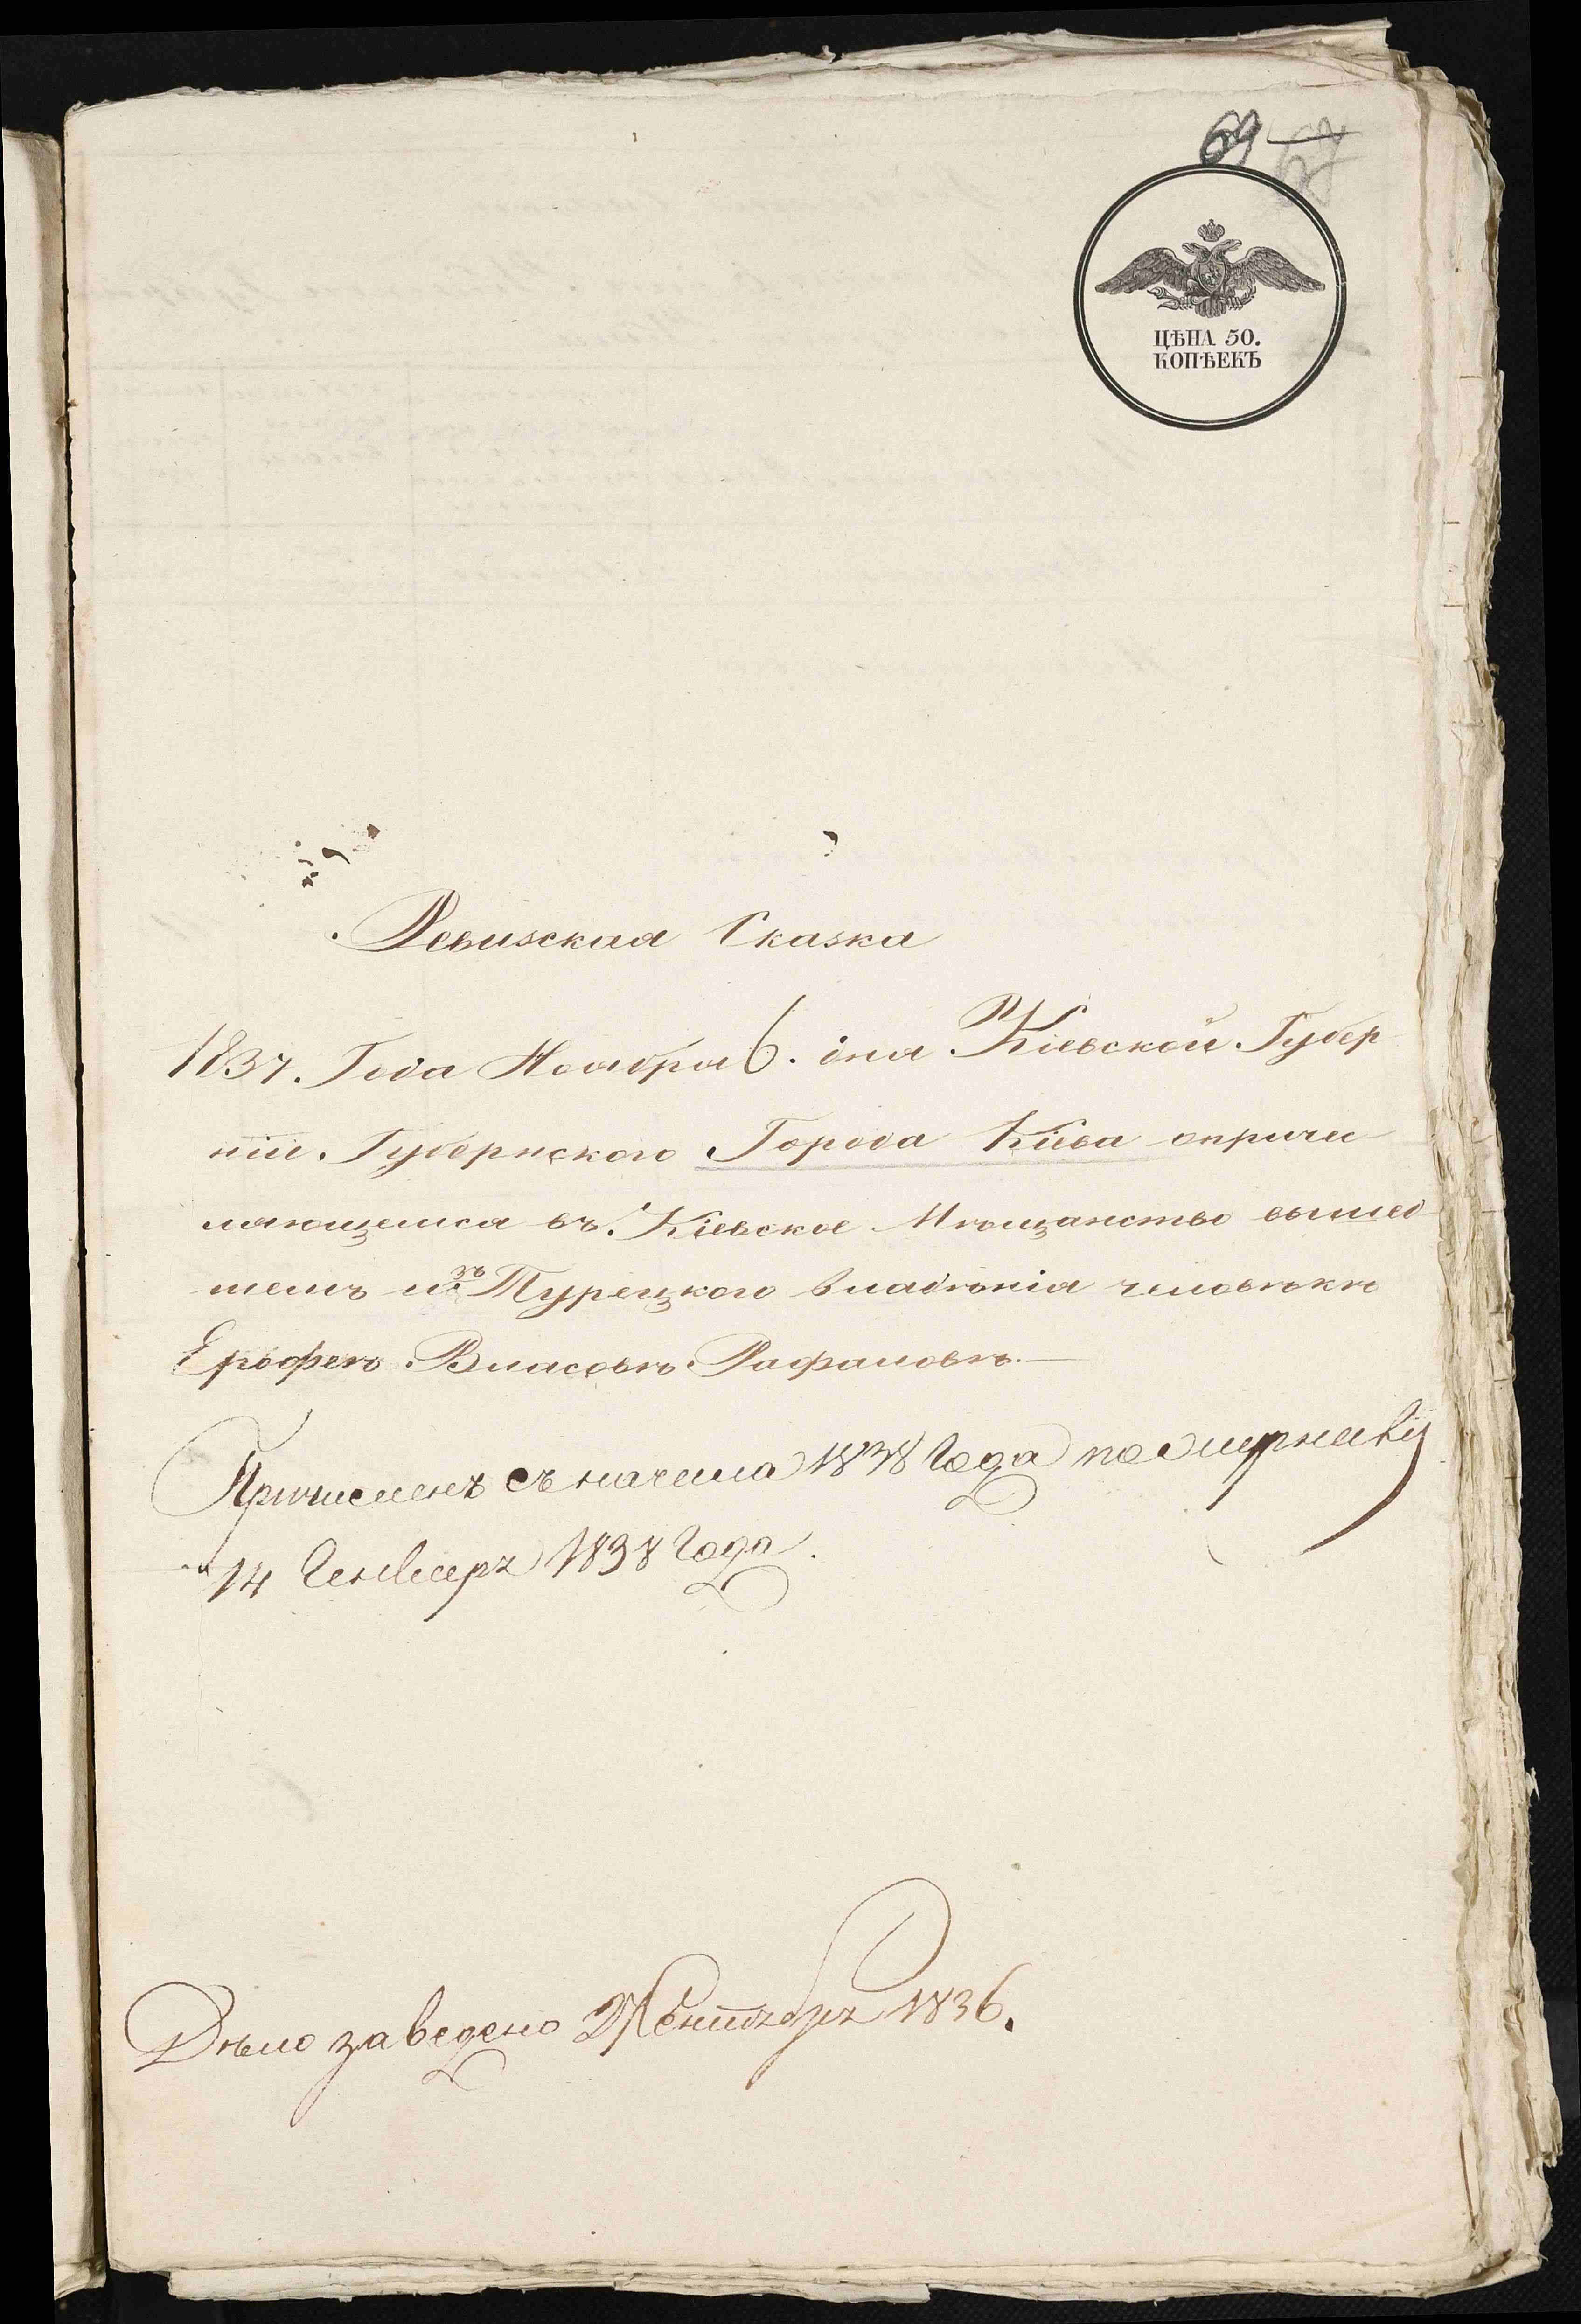 69 67
ЦѢНА 50.
КОПѢЕКЪ
Ревизская Сказка
1837. Года Ноября 6. дня Кіевской Губер
ніи Губернского Города Кіева опричи
сляющемся въ Кіевское Мѣщанство вышед
шемъ изъ Турецкого владѣнія человѣкѣ
Ерофеѣ Власовѣ Рафаловѣ.—
Причисленъ съ начала 1838 Года по журналу
14 Генваря 1838 Года.
Дѣло заведено 27 Сентября 1836.